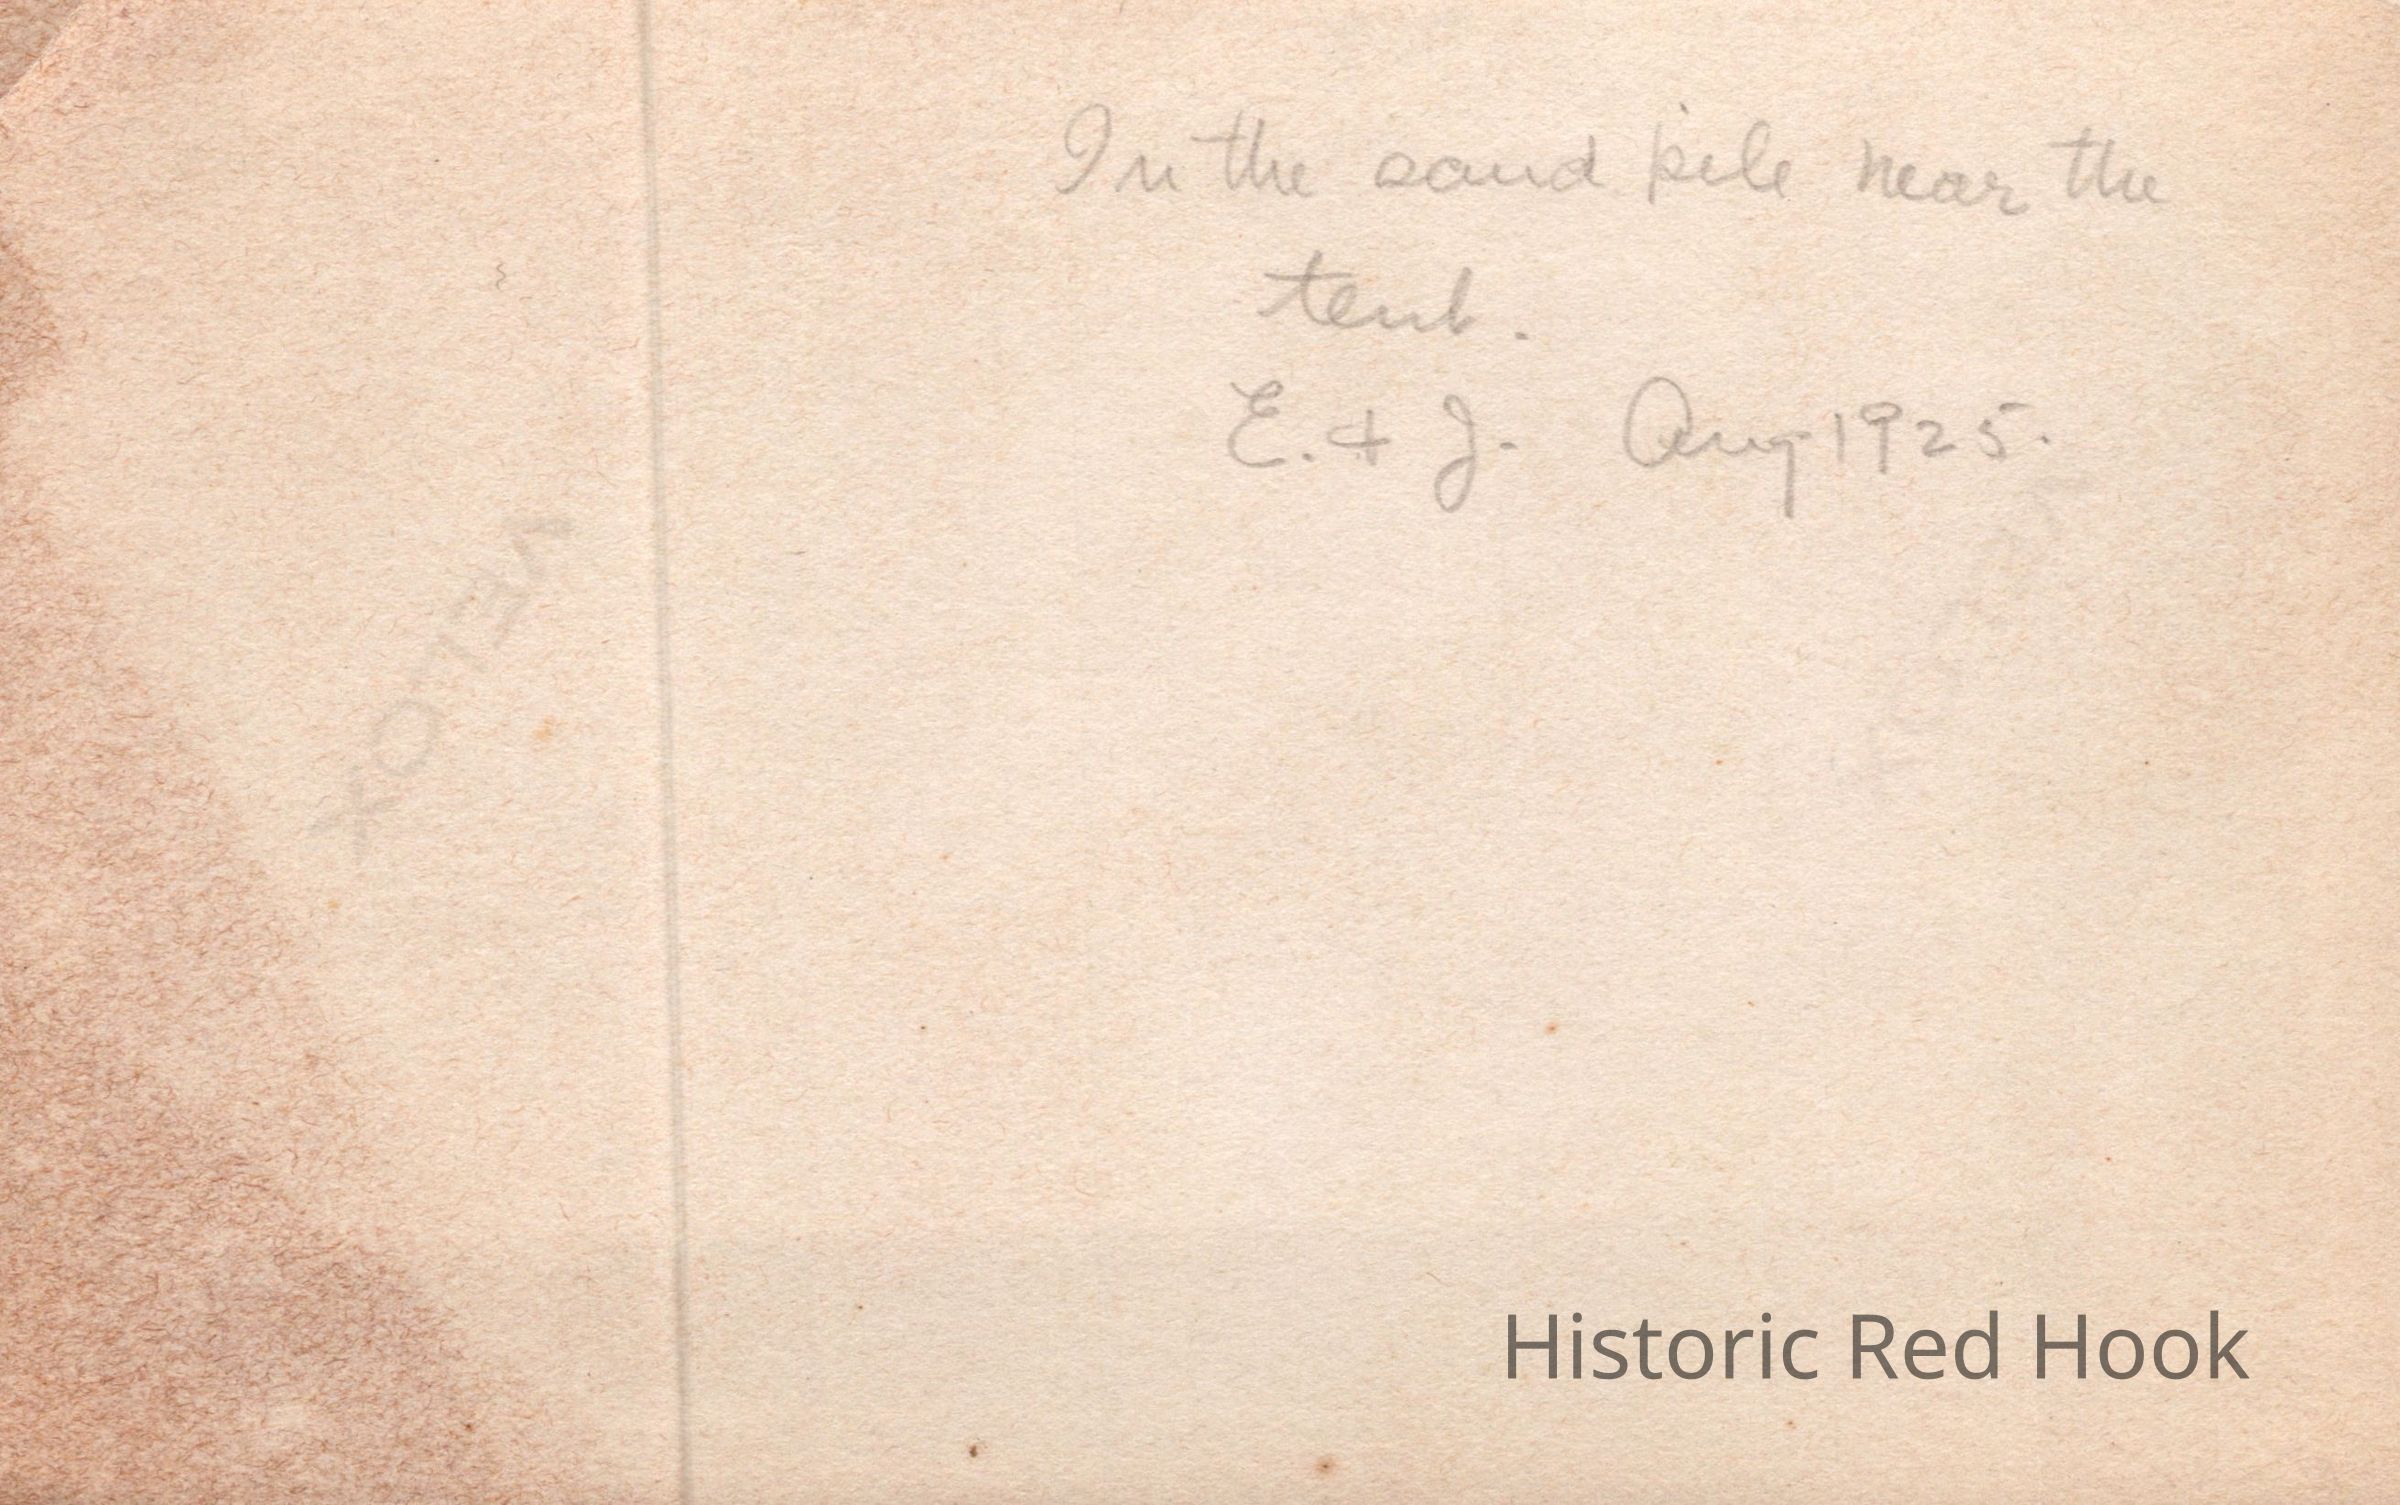 In the sand pile near the
tent.
E. & J. Aug 1925.
VELOX
VELOX
Historic Red Hook